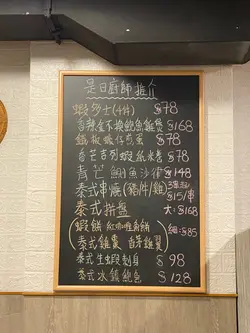 是日廚師推介
蝦多士(4件) $78
香辣金不換鮑魚雞煲 $168
鐵板蠔仔煎蛋 $78
香芒吉列蝦米紙卷 $78
青芒鯛魚沙律 $148
泰式串燒(豬/牛/雞) 3串起 $15/串
泰式拼盤 大:$168
(蝦餅 紅咖喱魚餅 細:$85
泰式雞翼 香茅雞翼)
泰式生蝦刺身 $98
泰式冰鎮鮑魚 $128